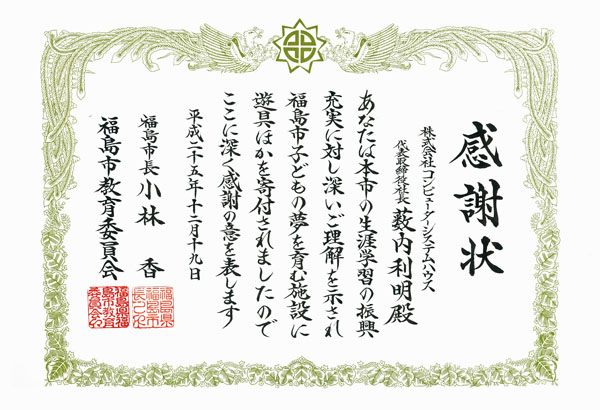 感謝状
株式会社コンピューターシステムハウス
代表取締役社長 薮内利明殿
あなたは本市の生涯学習の振興
充実に対し深いご理解を示され
福島市子どもの夢を育む施設に
遊具ほかを寄付されましたので
ここに深く感謝の意を表します
平成二十五年十二月十九日
福島市長 小林 香
福島市教育委員会